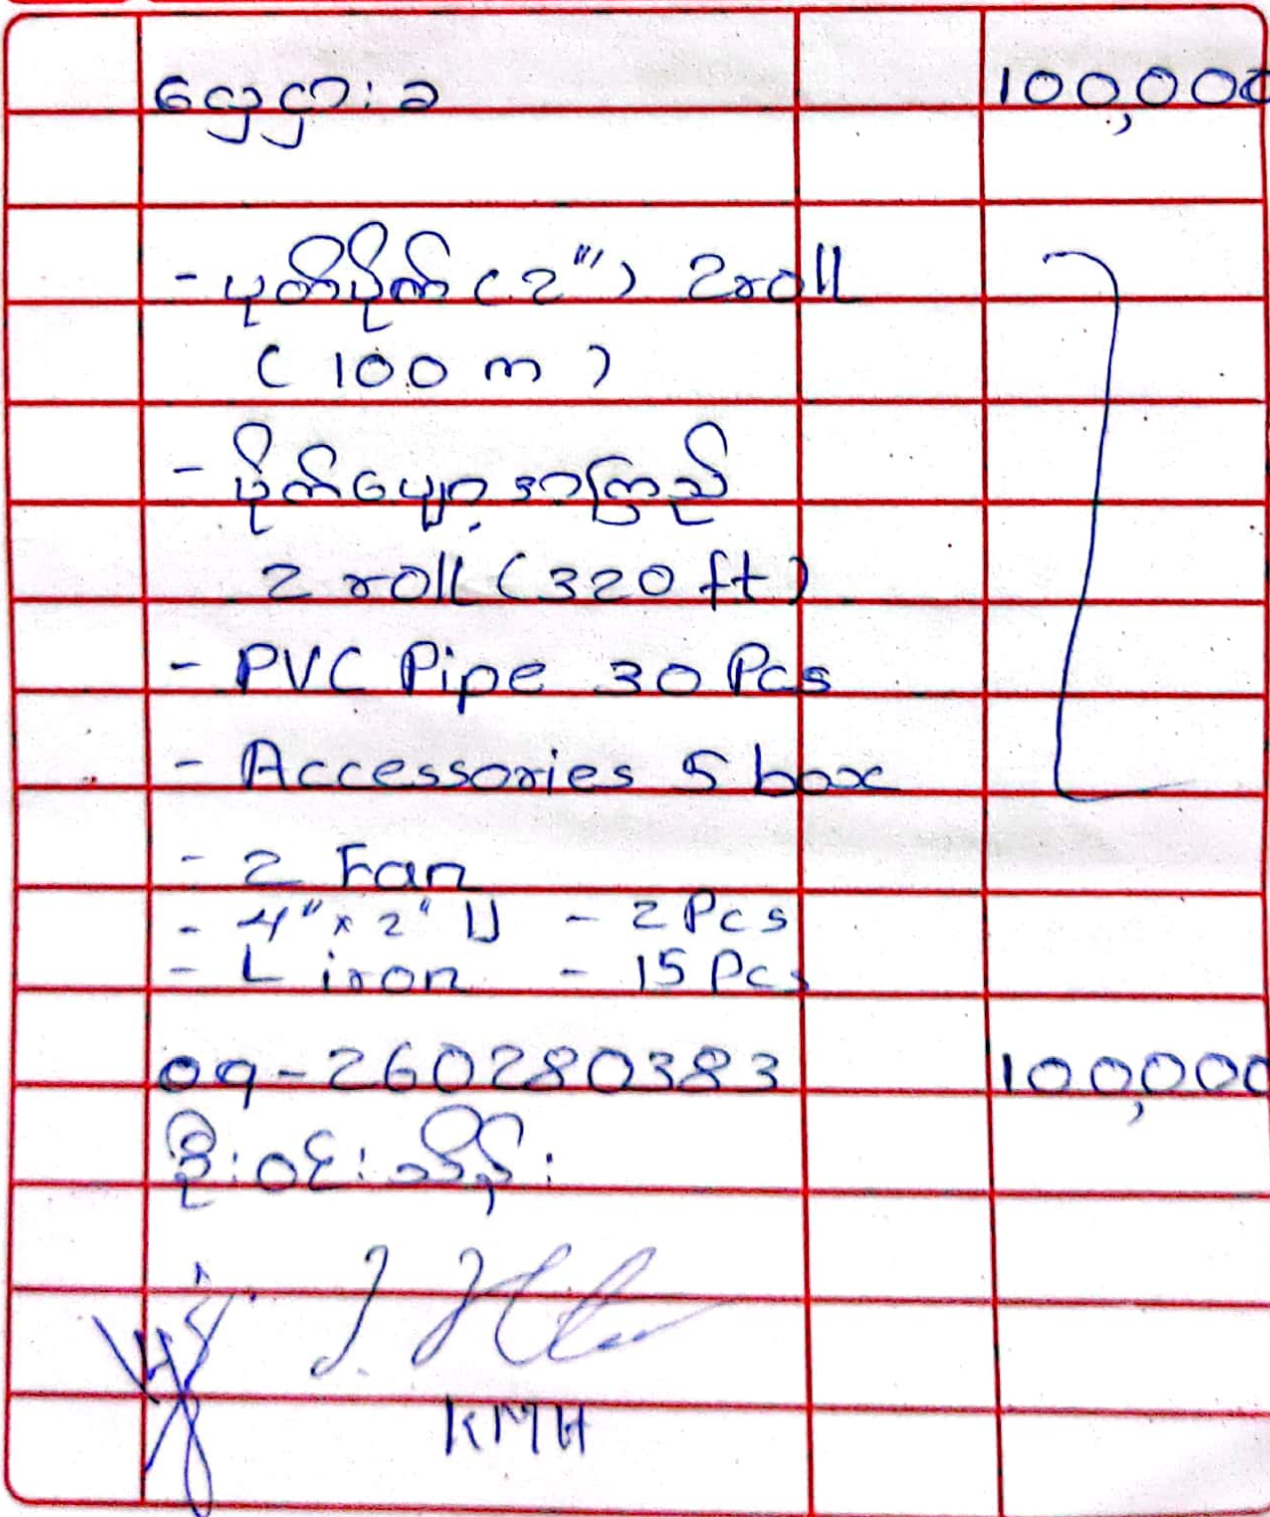 လှေငှားခ 100,000
- ပုတ်ပိုက် (2"') 2roll
(100 m)
- ပိုက်ပျော့အကြည်
2 roll (320 ft)
- PVC Pipe 30 Pcs
- Accessories 5 box
- 2 Fan
- 4" x 2" U - 2 Pcs
- L iron - 15 Pcs
09-260280383 100,000
ဦးဝင်းသိန်း
KMH